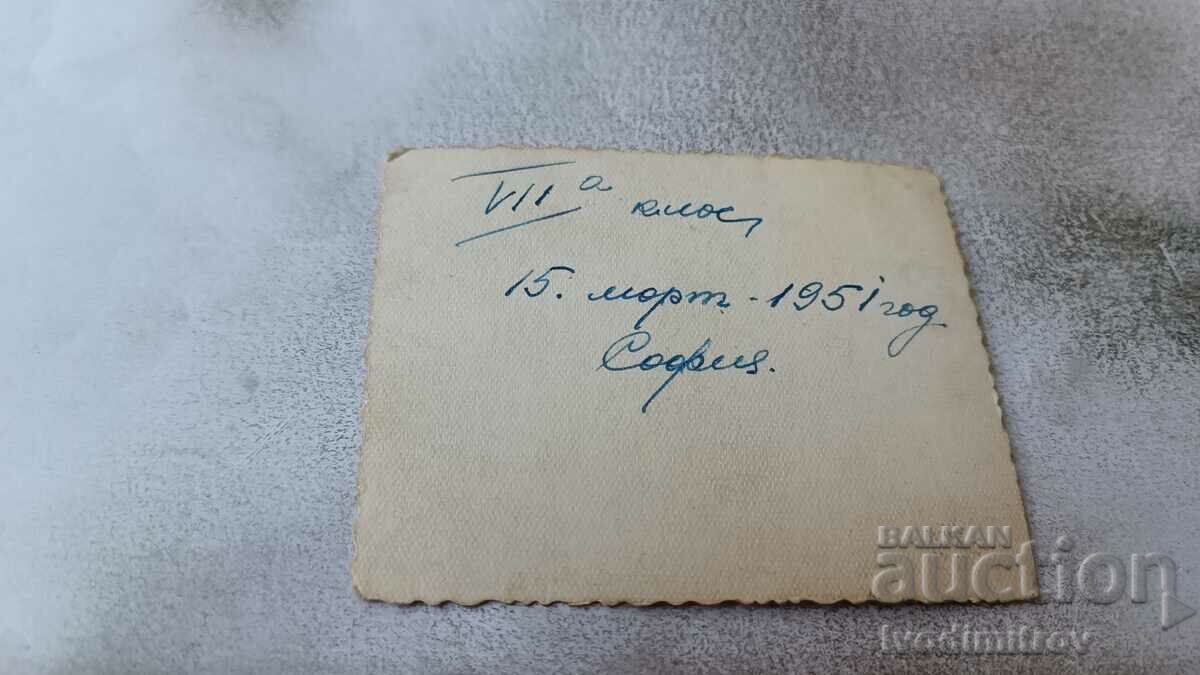 VIIа клас,
15. март - 1951 год
София.
BALKAN
auction
ivodimitrov